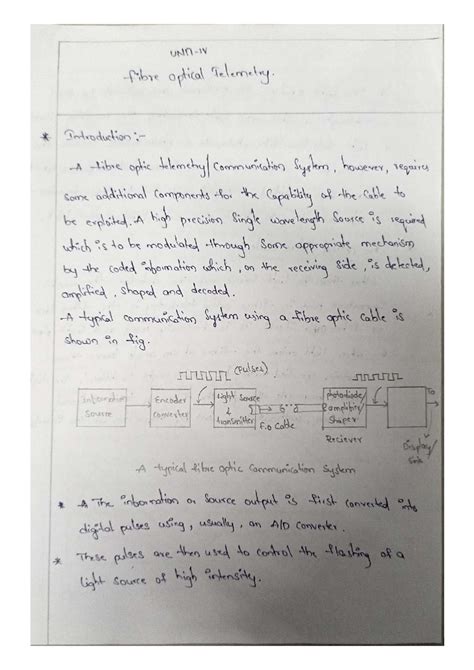 UNIT-IV
Fibre Optical Telemetry.
* Introduction :-
-A fibre optic telemetry/communication System, however, requires
some additional components for the Capability of the Cable to
be exploited. A high precision Single wavelength Source is required
which is to be modulated through Some appropriate mechanism
by the coded information which, on the receiving side, is detected,
amplified, shaped and decoded.
-A typical communication System using a fibre optic cable is
shown in fig.
(Pulses)
Information Source
Encoder Converter
Light source & transmitter
F.O Cable
photodiode & amplifier/ Shaper
Reciever
To
Display/
A typical fibre Optic Communication System
* A The information or Source output is first converted into
digital pulses using, usually, an A/D converter.
* These pulses are then used to control the flashing of a
light source of high intensity.